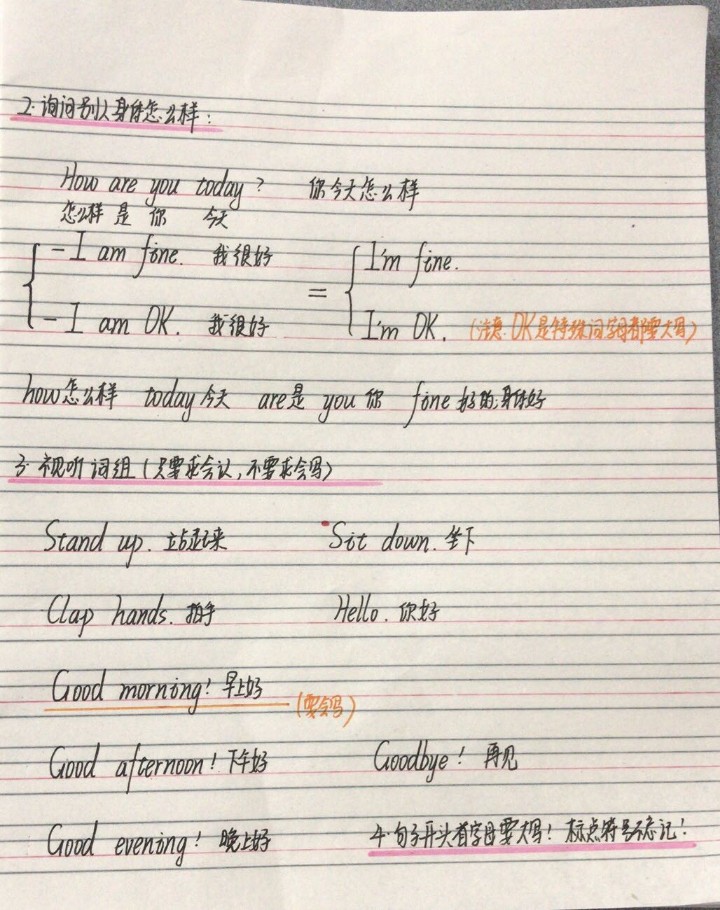 2. 询问别人身体怎么样:
How are you today? 你今天怎么样
怎么样 是 你 今天
- I am fine. 我很好 = I'm fine.
- I am OK. 我很好 I'm OK. (注意:OK是特殊词字母都要大写)
how怎么样 today今天 are是 you你 fine好的;身体好
3. 视听词组(只要求会认,不要求会写)
Stand up. 站起来 Sit down. 坐下
Clap hands. 拍手 Hello. 你好
Good morning! 早上好 (要会写)
Good afternoon! 下午好 Goodbye! 再见
Good evening! 晚上好 4. 句子开头首字母要大写! 标点符号不忘记!